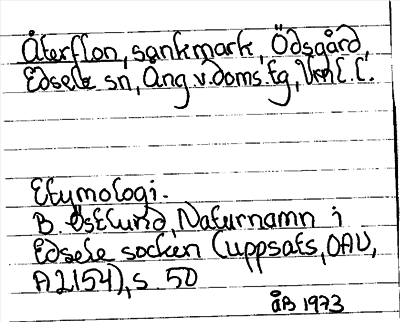 Återflon, sankmark, Ödsgård,
Edsele sn, Ång. v. doms. tg, Vnl. E. L.
Etymologi.
B. Östlund, Naturnamn i
Edsele socken (uppsats, OAU,
A 2154), s. 50
åB 1973